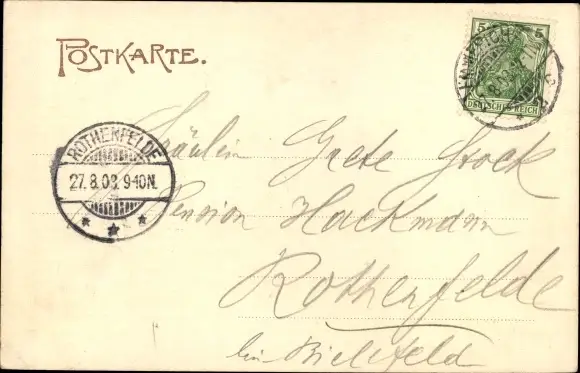 POSTKARTE.
5 5
DEUTSCHES REICH
ROTHENFELDE
27.8.03. 9-10N.
Fräulein Grete Stock
Pension Hackmann
Rothenfelde
bei Bielefeld